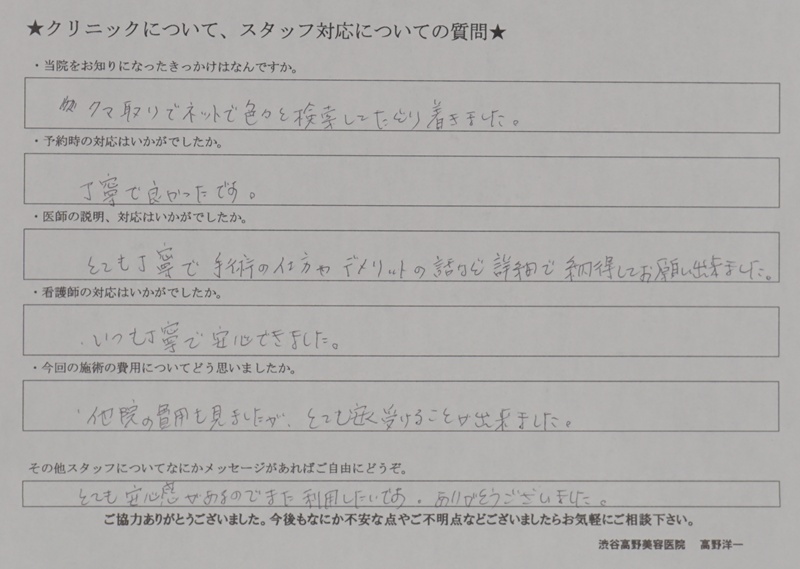 ★クリニックについて、スタッフ対応についての質問★
・当院をお知りになったきっかけはなんですか。
クマ取りでネットで色々と検索してたどり着きました。
・予約時の対応はいかがでしたか。
丁寧で良かったです。
・医師の説明、対応はいかがでしたか。
とても丁寧で手術の仕方やデメリットの話など詳細で納得してお願い出来ました。
・看護師の対応はいかがでしたか。
いつも丁寧で安心できました。
・今回の施術の費用についてどう思いましたか。
他院の費用も見ましたが、とても安く受けることが出来ました。
その他スタッフについてなにかメッセージがあればご自由にどうぞ。
とても安心感があるのでまた利用したいです。ありがとうございました。
ご協力ありがとうございました。今後もなにか不安な点やご不明点などございましたらお気軽にご相談下さい。
渋谷高野美容医院 高野洋一